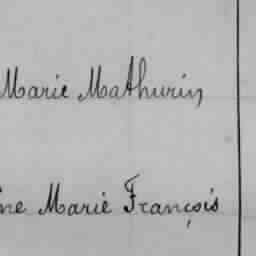 Marie Mathurin
ne Marie François